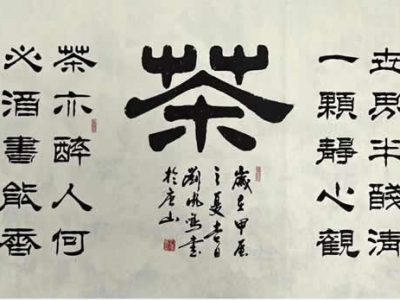 一顆靜心觀
世界半醆清
茶
歲在甲辰
之夏吉日
劉書
於唐山
茶亦醉人何
必酒書能香